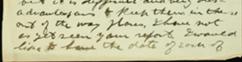 but it is difficult and very
advantageous to keep them in these
out of the way places. I have not
as yet seen your report. I would
like to have the date of each of